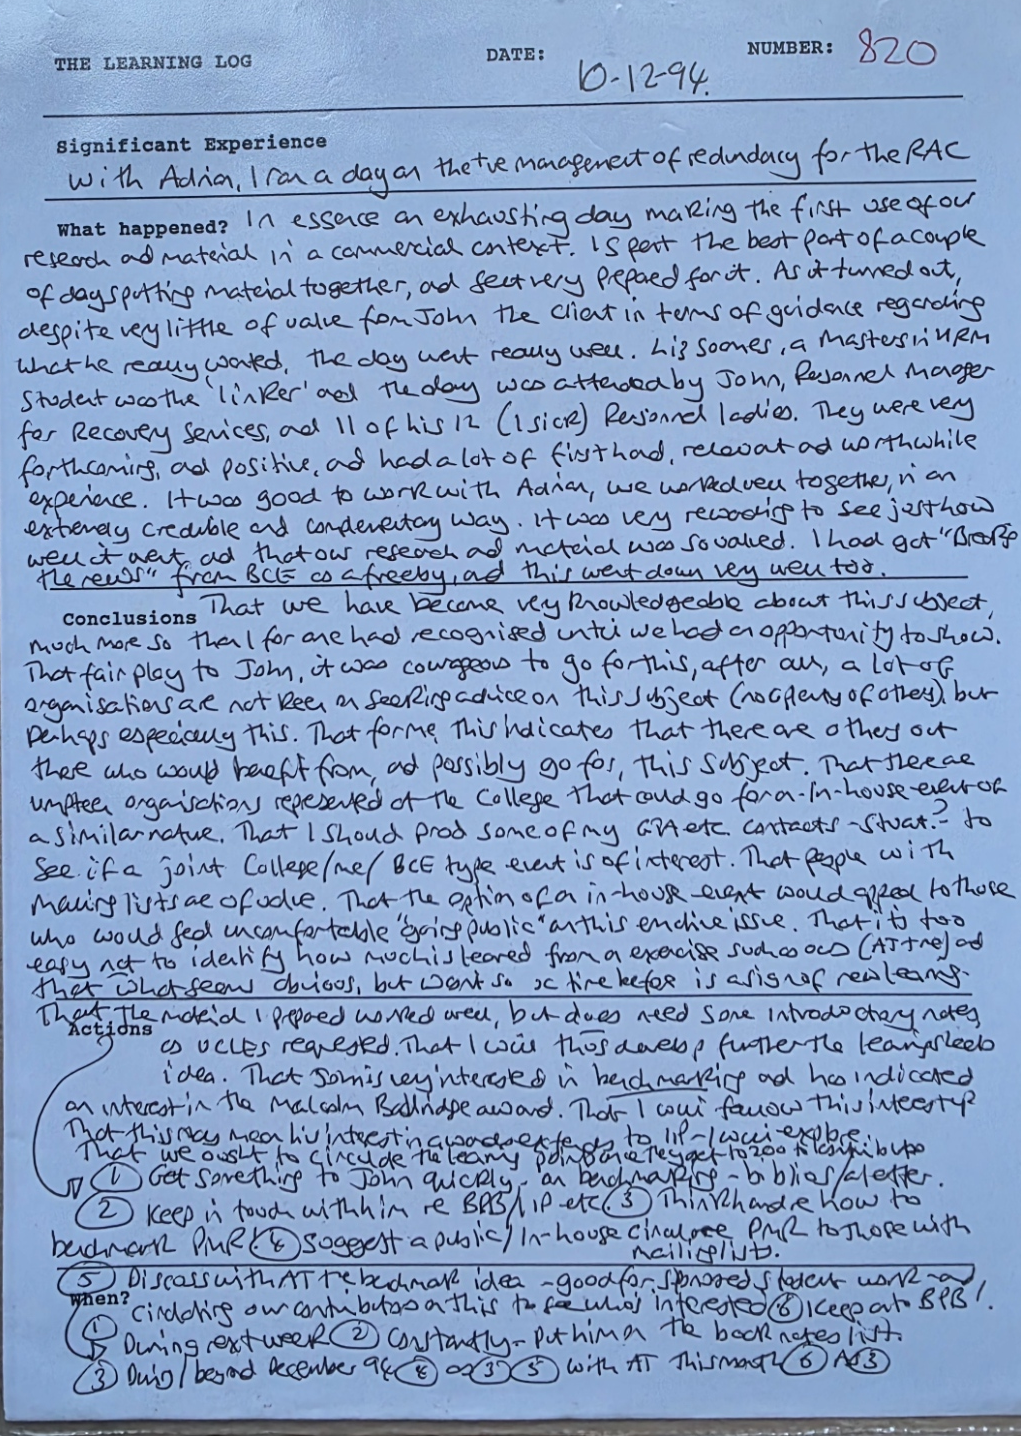 THE LEARNING LOG DATE: 10-12-94. NUMBER: 820
Significant Experience
With Adrian, I ran a day on the +ve management of redundancy for the RAC
What happened? In essence an exhausting day making the first use of our
research and material in a commercial context. I spent the best part of a couple
of days putting material together, and felt very prepared for it. As it turned out,
despite very little of value from John the client in terms of guidance regarding
what he really wanted, the day went really well. Liz Soomes, a Masters in HRM
Student was the 'linker' and the day was attended by John, Personnel Manager
for Recovery Services, and 11 of his 12 (1 sick) Personnel ladies. They were very
forthcoming, and positive, and had a lot of first hand, relevant and worthwhile
experience. It was good to work with Adrian, we worked well together, in an
extremely credible and complementary way. It was very rewarding to see just how
well it went, and that our research and material was so valued. I had got "Breaking
the news" from BCE as a freeby, and this went down very well too.
Conclusions That we have become very knowledgeable about this subject,
much more so than I for one had recognised until we had an opportunity to show.
That fair play to John, it was courageous to go for this, after all, a lot of
organisations are not keen on seeking advice on this subject (nor plenty of others), but
perhaps especially this. That for me, this indicates that there are others out
there who would benefit from, and possibly go for, this subject. That there are
umpteen organisations represented at the College that could go for an in-house event of
a similar nature. That I should prod some of my etc contacts - Stuart? to
see if a joint College/me/BCE type event is of interest. That people with
mailing lists are of value. That the option of an in-house event would appeal to those
who would feel uncomfortable "going public" on this emotive issue. That it is too
easy not to identify how much is learned from an exercise such as ours (AT + me) and
that what seems obvious, but wasn't so x time before is a sign of new learning.
That the material I prepared worked well, but does need some introductory notes
Actions
as UCLES requested. That I will thus develop further the learning sleeb
idea. That John is very interested in benchmarking and has indicated
an interest in the Malcolm Baldridge award. That I will follow this interest up
That this may mean his interest in awards extends to IIP - I will explore
That we ought to circulate the learning points once they get to 200 to contributors
① Get something to John quickly - on benchmarking - biblios/a letter.
② Keep in touch with him re BPB/IIP etc. ③ Think hard re how to
benchmark PMR. ④ Suggest a public/in-house circular re PMR to those with
mailing lists.
⑤ Discuss with AT re benchmark idea - good for sponsored student work - and
When?
circulating our contributors on this to see who's interested ⑥ Keep onto BPB!
① During next week ② Constantly - put him on the book notes list.
③ During/beyond December 94 ④ as ③ ⑤ with AT this month ⑥ As ③